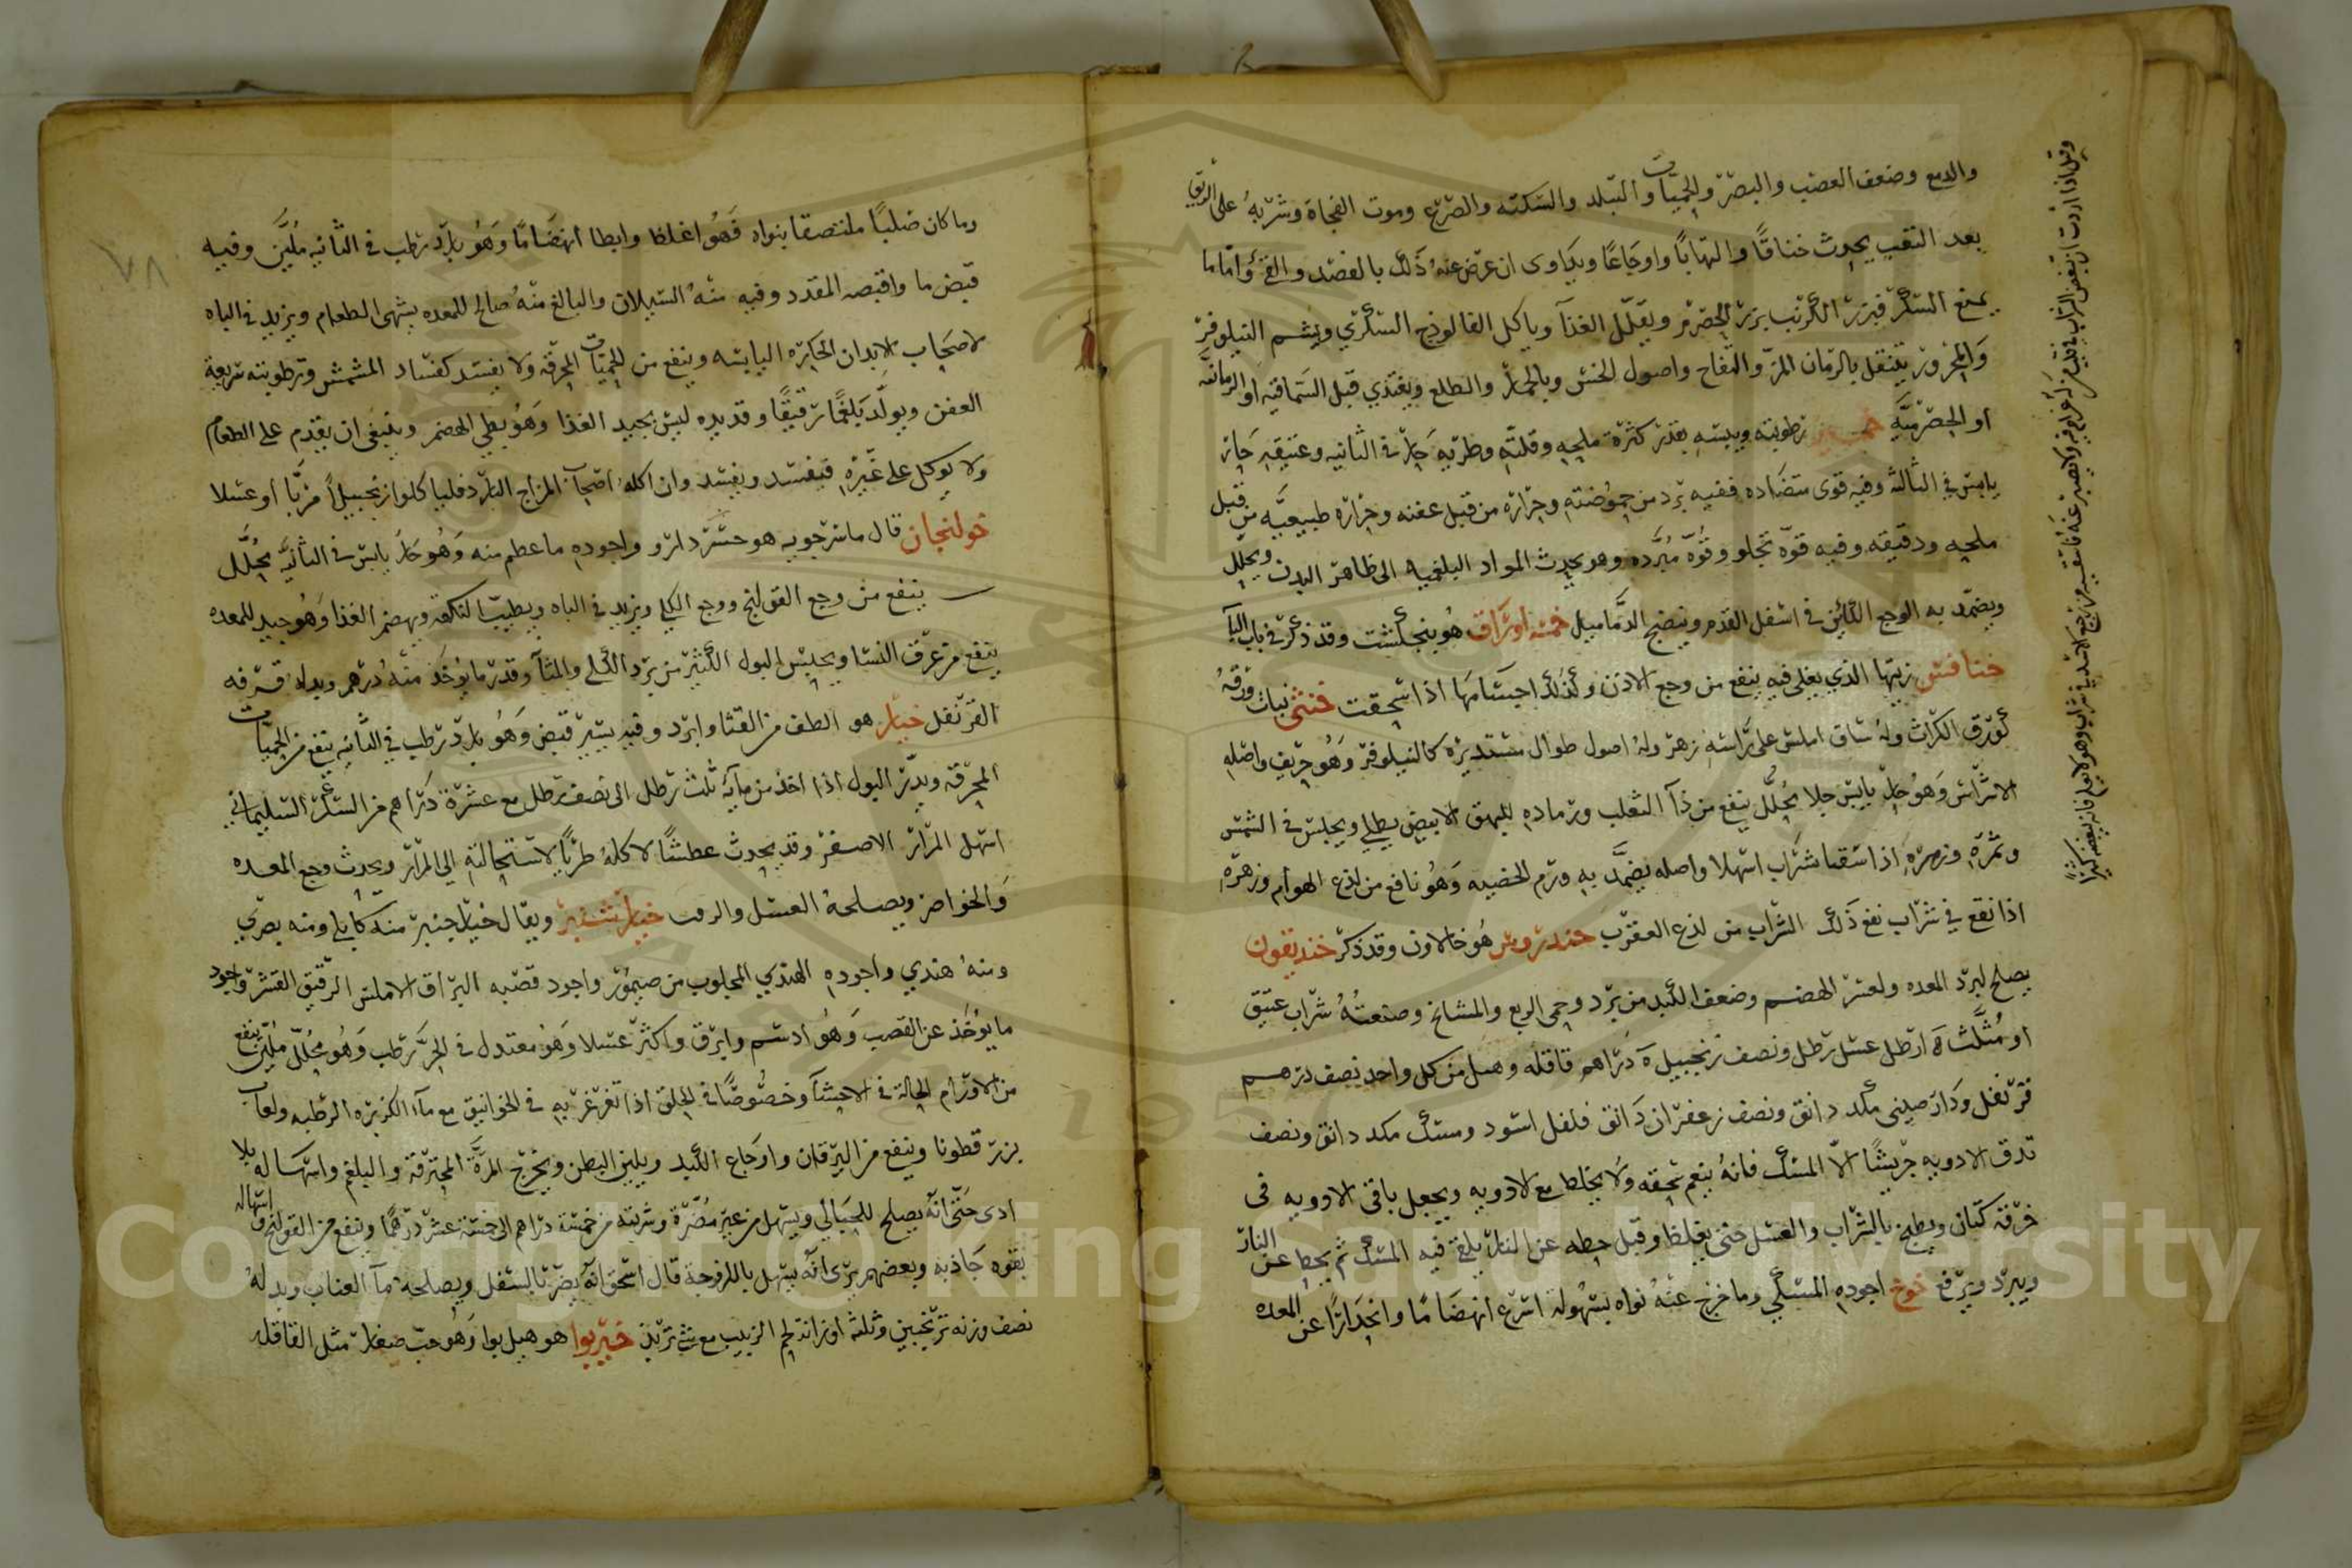 والدمع وضعف العصب والبصر والحميات والتبلد والسكته والصرع وموت الفجاة وشربه على الريق
بعد التعب يحدث خناقا والتهابا واوجاعا ويداوى ان عرض عنه ذلك بالفصد والقئ واما ما
يمنع السكر فبزر الكرنب بزر الحصرم ويقلل الغذآ وياكل الفالوذج السكري ويشم النيلوفر
والمحرور يتنقل بالرمان المز والتفاح واصول الخس وبالجمار والطلع ويغتذي قبل السماقيه او الرمانيه
او الحصرميه رطوبته ويبسه بقدر كثرة ملحه وقلته وطريه حار في الثانيه وعتيقه حار
يابس في الثالثه وفيه قوى متضاده ففيه برد من حموضته وحراره من قبل عفنه وحراره طبيعيه من قبل
ملحه ودقيقه وفيه قوة تجلو وقوة مبرده وهو يحدث المواد البلغميه الى ظاهر البدن ويحلل
ويضمد به الوجع الكائن في اسفل القدم وينضج الدماميل خمسة اوراق هو بنجنكشت وقد ذكر في باب البآ
خنافس زيتها الذي يغلى فيه ينفع من وجع الاذن وكذلك اجسامها اذا سحقت خنثى نبات ورقه
كورق الكراث وله ساق املس على راسه زهر وله اصول طوال مستديره كالنيلوفر وهو حريف واصله
الاشراس وهو حار يابس جلا محلل ينفع من دآ الثعلب ورماده للبهق الابيض يطلى ويجلس في الشمس
وثمره وزهره اذا سقيا شراب اسهلا واصله يضمد به ورم الخصيه وهو نافع من لذع الهوام وزهره
اذا نقع في شراب نفع ذلك الشراب من لذع العقرب خندروس هو خالاون وقد ذكر خنديقون
يصلح لبرد المعده ولعسر الهضم وضعف الكبد من برد وحمى الربع والمشايخ وصنعته شراب عتيق
او مثلث ارطل عسل رطل ونصف زنجبيل دراهم قاقله وهيل من كل واحد نصف درهم
قرنفل ودارصيني مكد دانق ونصف زعفران دانق فلفل اسود ومسك مكد دانق ونصف
تدق الادويه جريشا الا المسك فانه ينعم سحقه ولا يخلط مع الادويه ويجعل باقي الادويه في
خرقة كتان ويطبخ بالشراب والعسل حتى يغلظ وقبل حطه عن النار يلقى فيه المسك ثم يحط عن النار
ويبرد ويرفع خوخ اجوده المسكي وما خرج عنه نواه بسهولة اسرع انهضاما وانحدارا عن المعده
وما كان صلبا ملتصقا بنواه فهو اغلظ وابطا انهضاما وهو بارد رطب في الثانيه ملين وفيه
قبض ما واقبضه المقدد وفيه منه السيلان والبالغ منه صالح للمعده يشهى الطعام ويزيد في الباه
لاصحاب الابدان الحاره اليابسه وينفع من الحميات المحرقه ولا يفسد كفساد المشمش ورطوبته سريعة
العفن ويولد بلغما رقيقا وقديده ليس بجيد الغذا وهو بطي الهضم وينبغي ان يقدم على الطعام
ولا يوكل على غيره فيفسد ويفسد وان اكله اصحاب المزاج البارد فلياكلوا زنجبيلا مربا او عسلا
خولنجان قال ماسرجويه هو خسرد ارو واجوده ما عظم منه وهو حار يابس في الثانيه محلل
ينفع من وجع القولنج ووجع الكلي ويزيد في الباه ويطيب النكهة ويهضم الغذا وهو جيد للمعده
ينفع من عرق النسا ويحبس البول الكثير من برد الكلي والمثانه وقدر ما يؤخذ منه درهم وبدله قرفه
القرنفل خيار هو الطف من القثا وابرد وفيه يسير قبض وهو بارد رطب في الثانيه ينفع من الحميات
المحرقه ويدر البول اذا اخذ من مايه ثلث رطل الى نصف رطل مع عشرة دراهم من السكر السليماني
اسهل المرار الاصفر وقد يحدث عطشا لاكله طريا لاستحالته الى المرار ويحدث وجع المعده
والخواصر ويصلحه العسل والزفت خيار شنبر ويقال خيار جنبر منه كابلي ومنه بصري
ومنه هندي واجوده الهندي المجلوب من صيمور واجود قصبه البراق الاملس الرقيق القشر واجود
ما يؤخذ عن القصب وهو ادسم وابرق واكثر عسلا وهو معتدل في الحر رطب وهو محلل ملين ينفع
من الاورام الحارة في الاحشآ وخصوصا في الحلق اذا تغرغر به في الخوانيق مع مآ الكزبره الرطبه ولعاب
بزر قطونا وينفع من اليرقان واوجاع الكبد ويلين البطن ويخرج المرة المحترقة والبلغم واسهاله بلا
اذى حتى انه يصلح للحبالى ويسهل من غير مضرة وشربته من خمسة دراهم الى خمسة عشر درهما وينفع من القولنج واسهاله
بقوه جاذبه وبعضهم يرى انه يسهل باللزوجة قال اسحق انه يضر بالسفل ويصلحه مآ العناب وبدله
نصف وزنه ترنجبين وثلثة اوزانه لحم الزبيب مع تربد خيربوا هو هيل بوا وهو حب صغار مثل القاقله